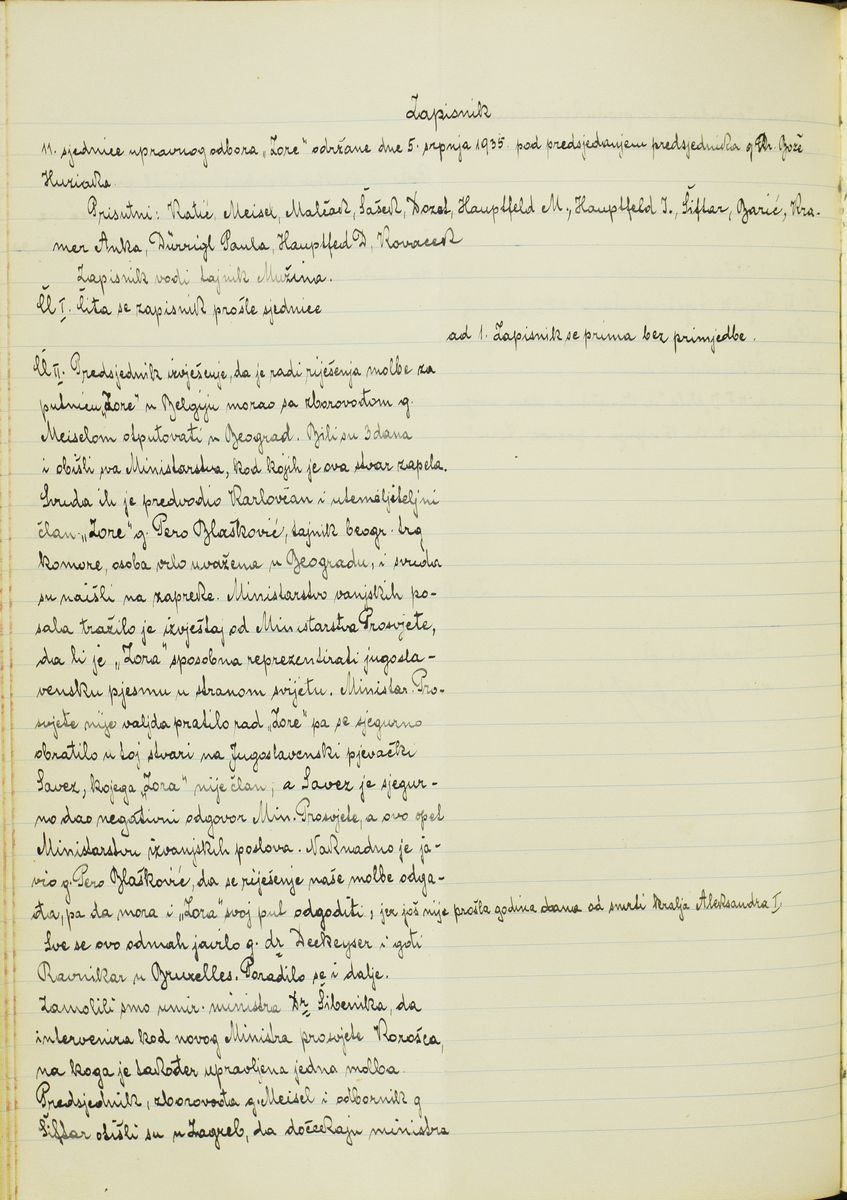 Zapisnik
11. sjednice upravnog odbora „Zore" održane dne 5. srpnja 1935. pod predsjedanjem predsjednika g Dr. Bože
Huziaka.
Prisutni: Katić, Meisel, Malčak, Šašek, Dozet, Hauptfeld M., Hauptfeld I., Šiftar, Barić, Kra-
mer Anka, Dürrigl Paula, Hauptfed D, Kovacek
Zapisnik vodi tajnik Mužina.
Čl I. Čita se zapisnik prošle sjednice
ad 1. Zapisnik se prima bez primjedbe.
Čl II. Predsjednik izvješćuje, da je radi riješenja molbe za
putnicu „Zore" u Belgiju morao sa zborovođom g.
Meiselom otputovati u Beograd. Bili su 3 dana
i obišli sva Ministarstva, kod kojih je ova stvar zapela.
Svuda ih je predvodio Karlovčan i utemeljiteljni
član „Zore" g. Pero Blašković, tajnik beogr. trg
komore, osoba vrlo uvažena u Beogradu, i svuda
su naišli na zapreke. Ministarstvo vanjskih po-
sala tražilo je izvještaj od Ministarstva Prosvjete,
da li je „Zora" sposobna reprezentirati jugosla-
vensku pjesmu u stranom svijetu. Ministar. Pro-
svjete nije valjda pratilo rad „Zore" pa se sjegurno
obratilo u toj stvari na Jugoslavenski pjevački
Savez, kojega „Zora" nije član; a Savez je sjegur-
no dao negativni odgovor Min. Prosvjete, a ovo opet
Ministarstvu izvanjskih poslova. Naknadno je ja-
vio g. Pero Blašković, da se riješenje naše molbe odga-
đa, pa da mora i „Zora" svoj put odgoditi, jer još nije prošla godina dana od smrti kralja Aleksandra I.
Sve se ovo odmah javilo g. dr Deekeyser i gđi
Ravnikar u Bruxelles. Poradilo se i dalje.
Zamolili smo umir. ministra Dr Šibenika, da
intervenira kod novog Ministra prosvjete Korošca,
na koga je također upravljena jedna molba.
Predsjednik, zborovođa g. Meisel i odbornik g
Šiftar otišli su u Zagreb, da dočekaju ministra